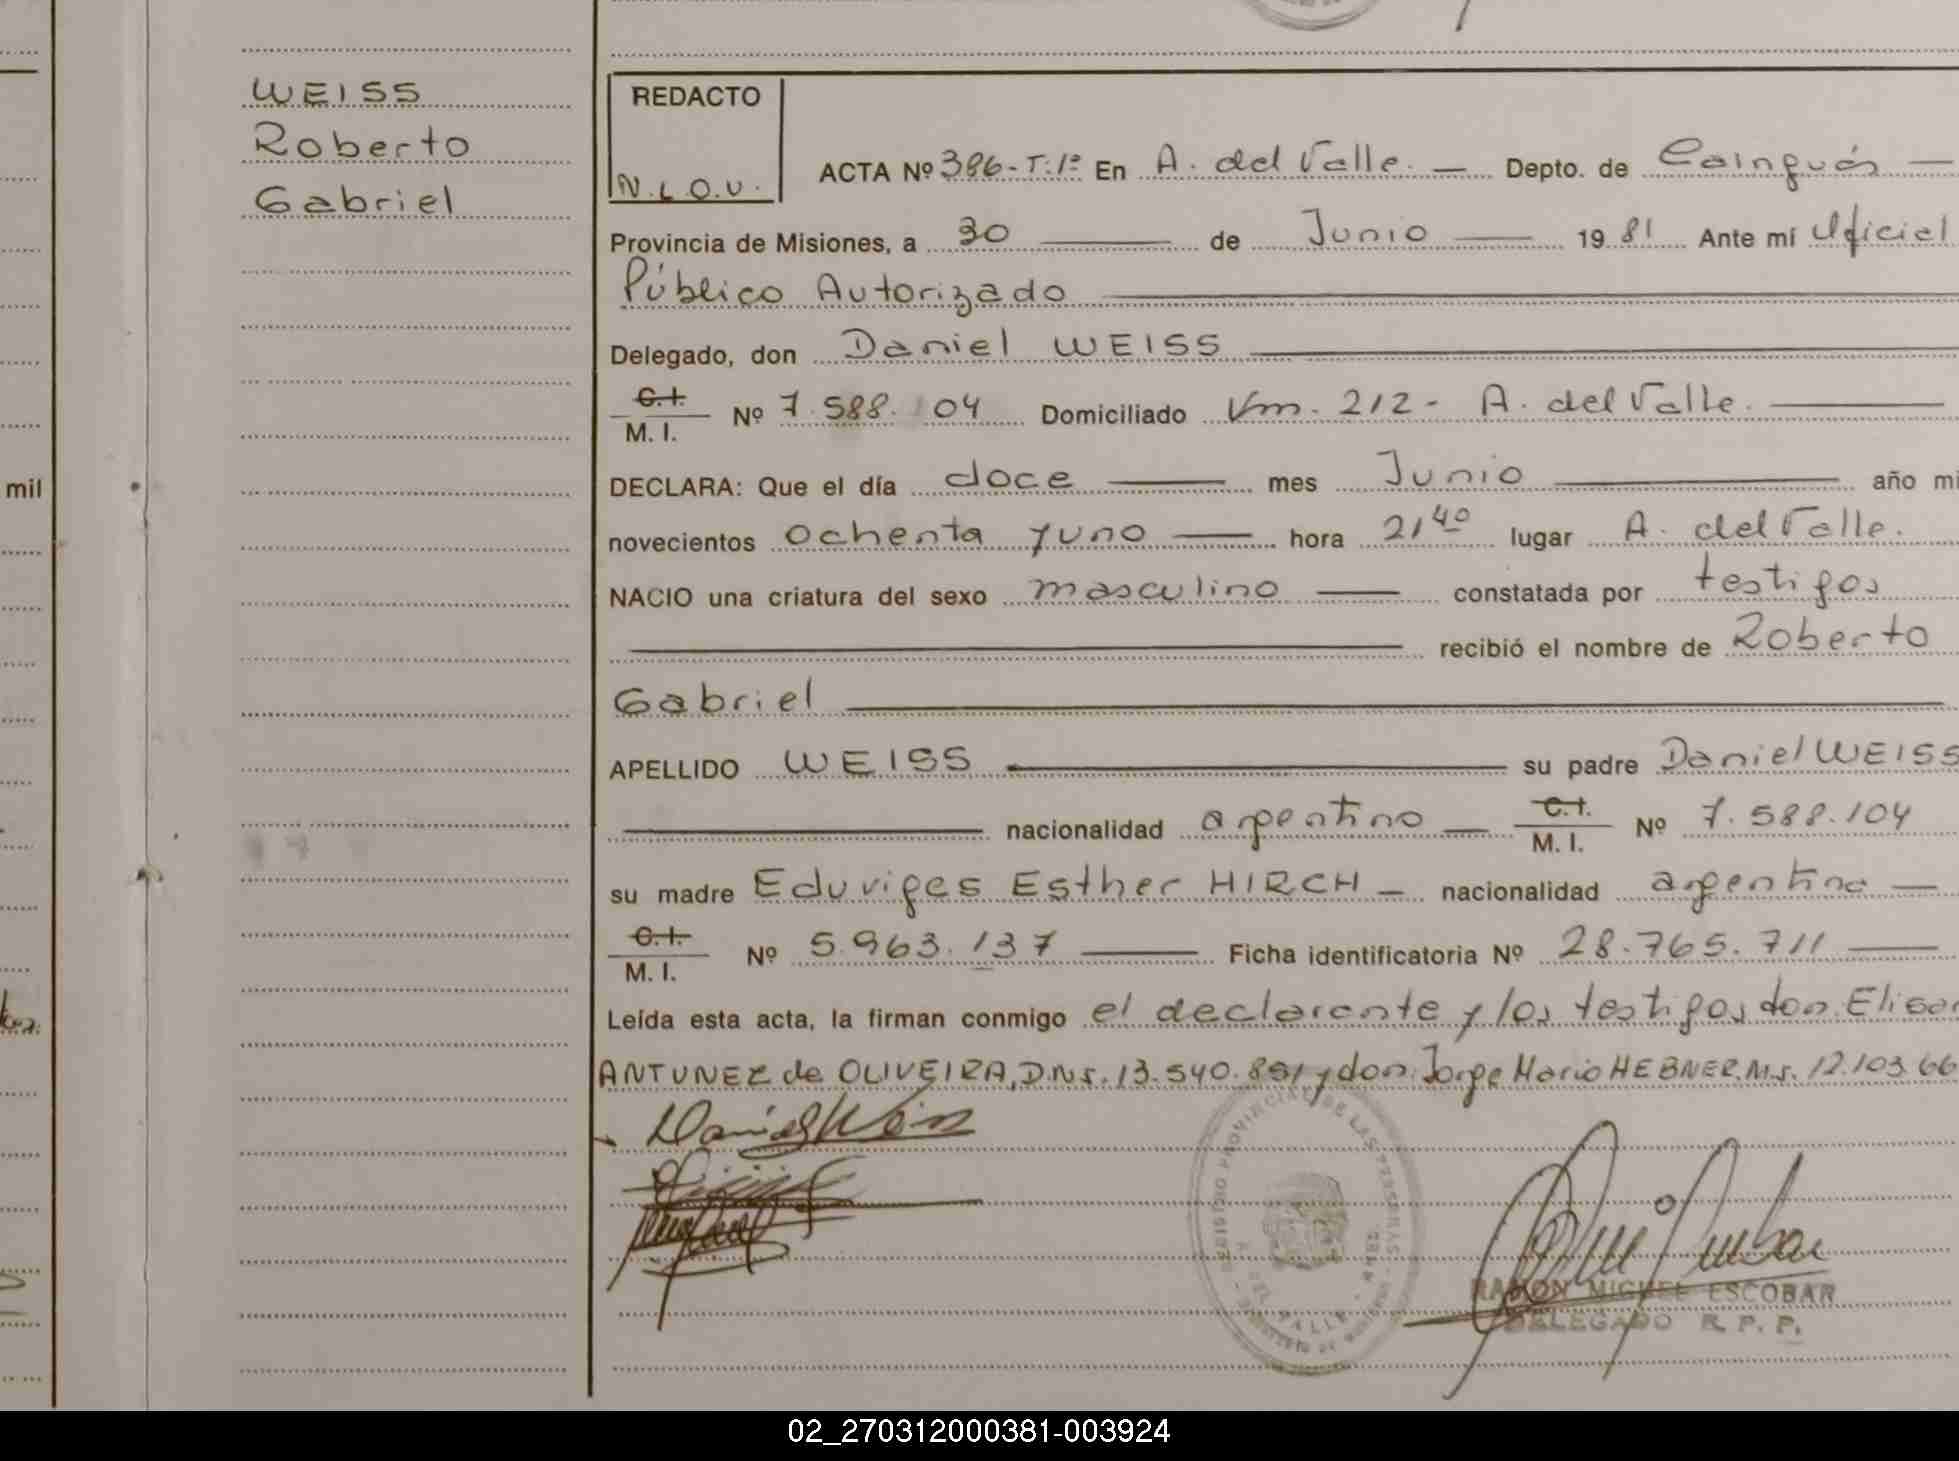 WEISS
Roberto
Gabriel
REDACTO
N.L.O.V.
ACTA Nº 386-T:1º En A. del Valle. Depto. de Cainguás
Provincia de Misiones, a 30 de Junio 1981 Ante mí Oficial
Público Autorizado
Delegado, don Daniel WEISS
C.I.
M. I. Nº 7.588.104 Domiciliado Km. 212 - A. del Valle.
DECLARA: Que el día doce mes Junio año mi
mil
novecientos ochenta y uno hora 21 40 lugar A. del Valle.
NACIO una criatura del sexo masculino constatada por testigos
recibió el nombre de Roberto
Gabriel
APELLIDO WEISS su padre Daniel WEISS
nacionalidad argentino C.I.
M. I. Nº 7.588.104
su madre Eduviges Esther HIRCH nacionalidad argentina
C.I.
M. I. Nº 5.963.137 Ficha identificatoria Nº 28.765.711
Leída esta acta, la firman conmigo el declarante y los testigos don Eliseo
ANTUNEZ de OLIVEIRA, D.N.I. 13.540.851 y don Jorge Mario HEBNER, M.I. 12.103.66
Daniel Weiss
REGISTRO PROVINCIAL DE LAS PERSONAS
DEL VALLE
RAMON MIGUEL ESCOBAR
DELEGADO R. P. P.
02_270312000381-003924